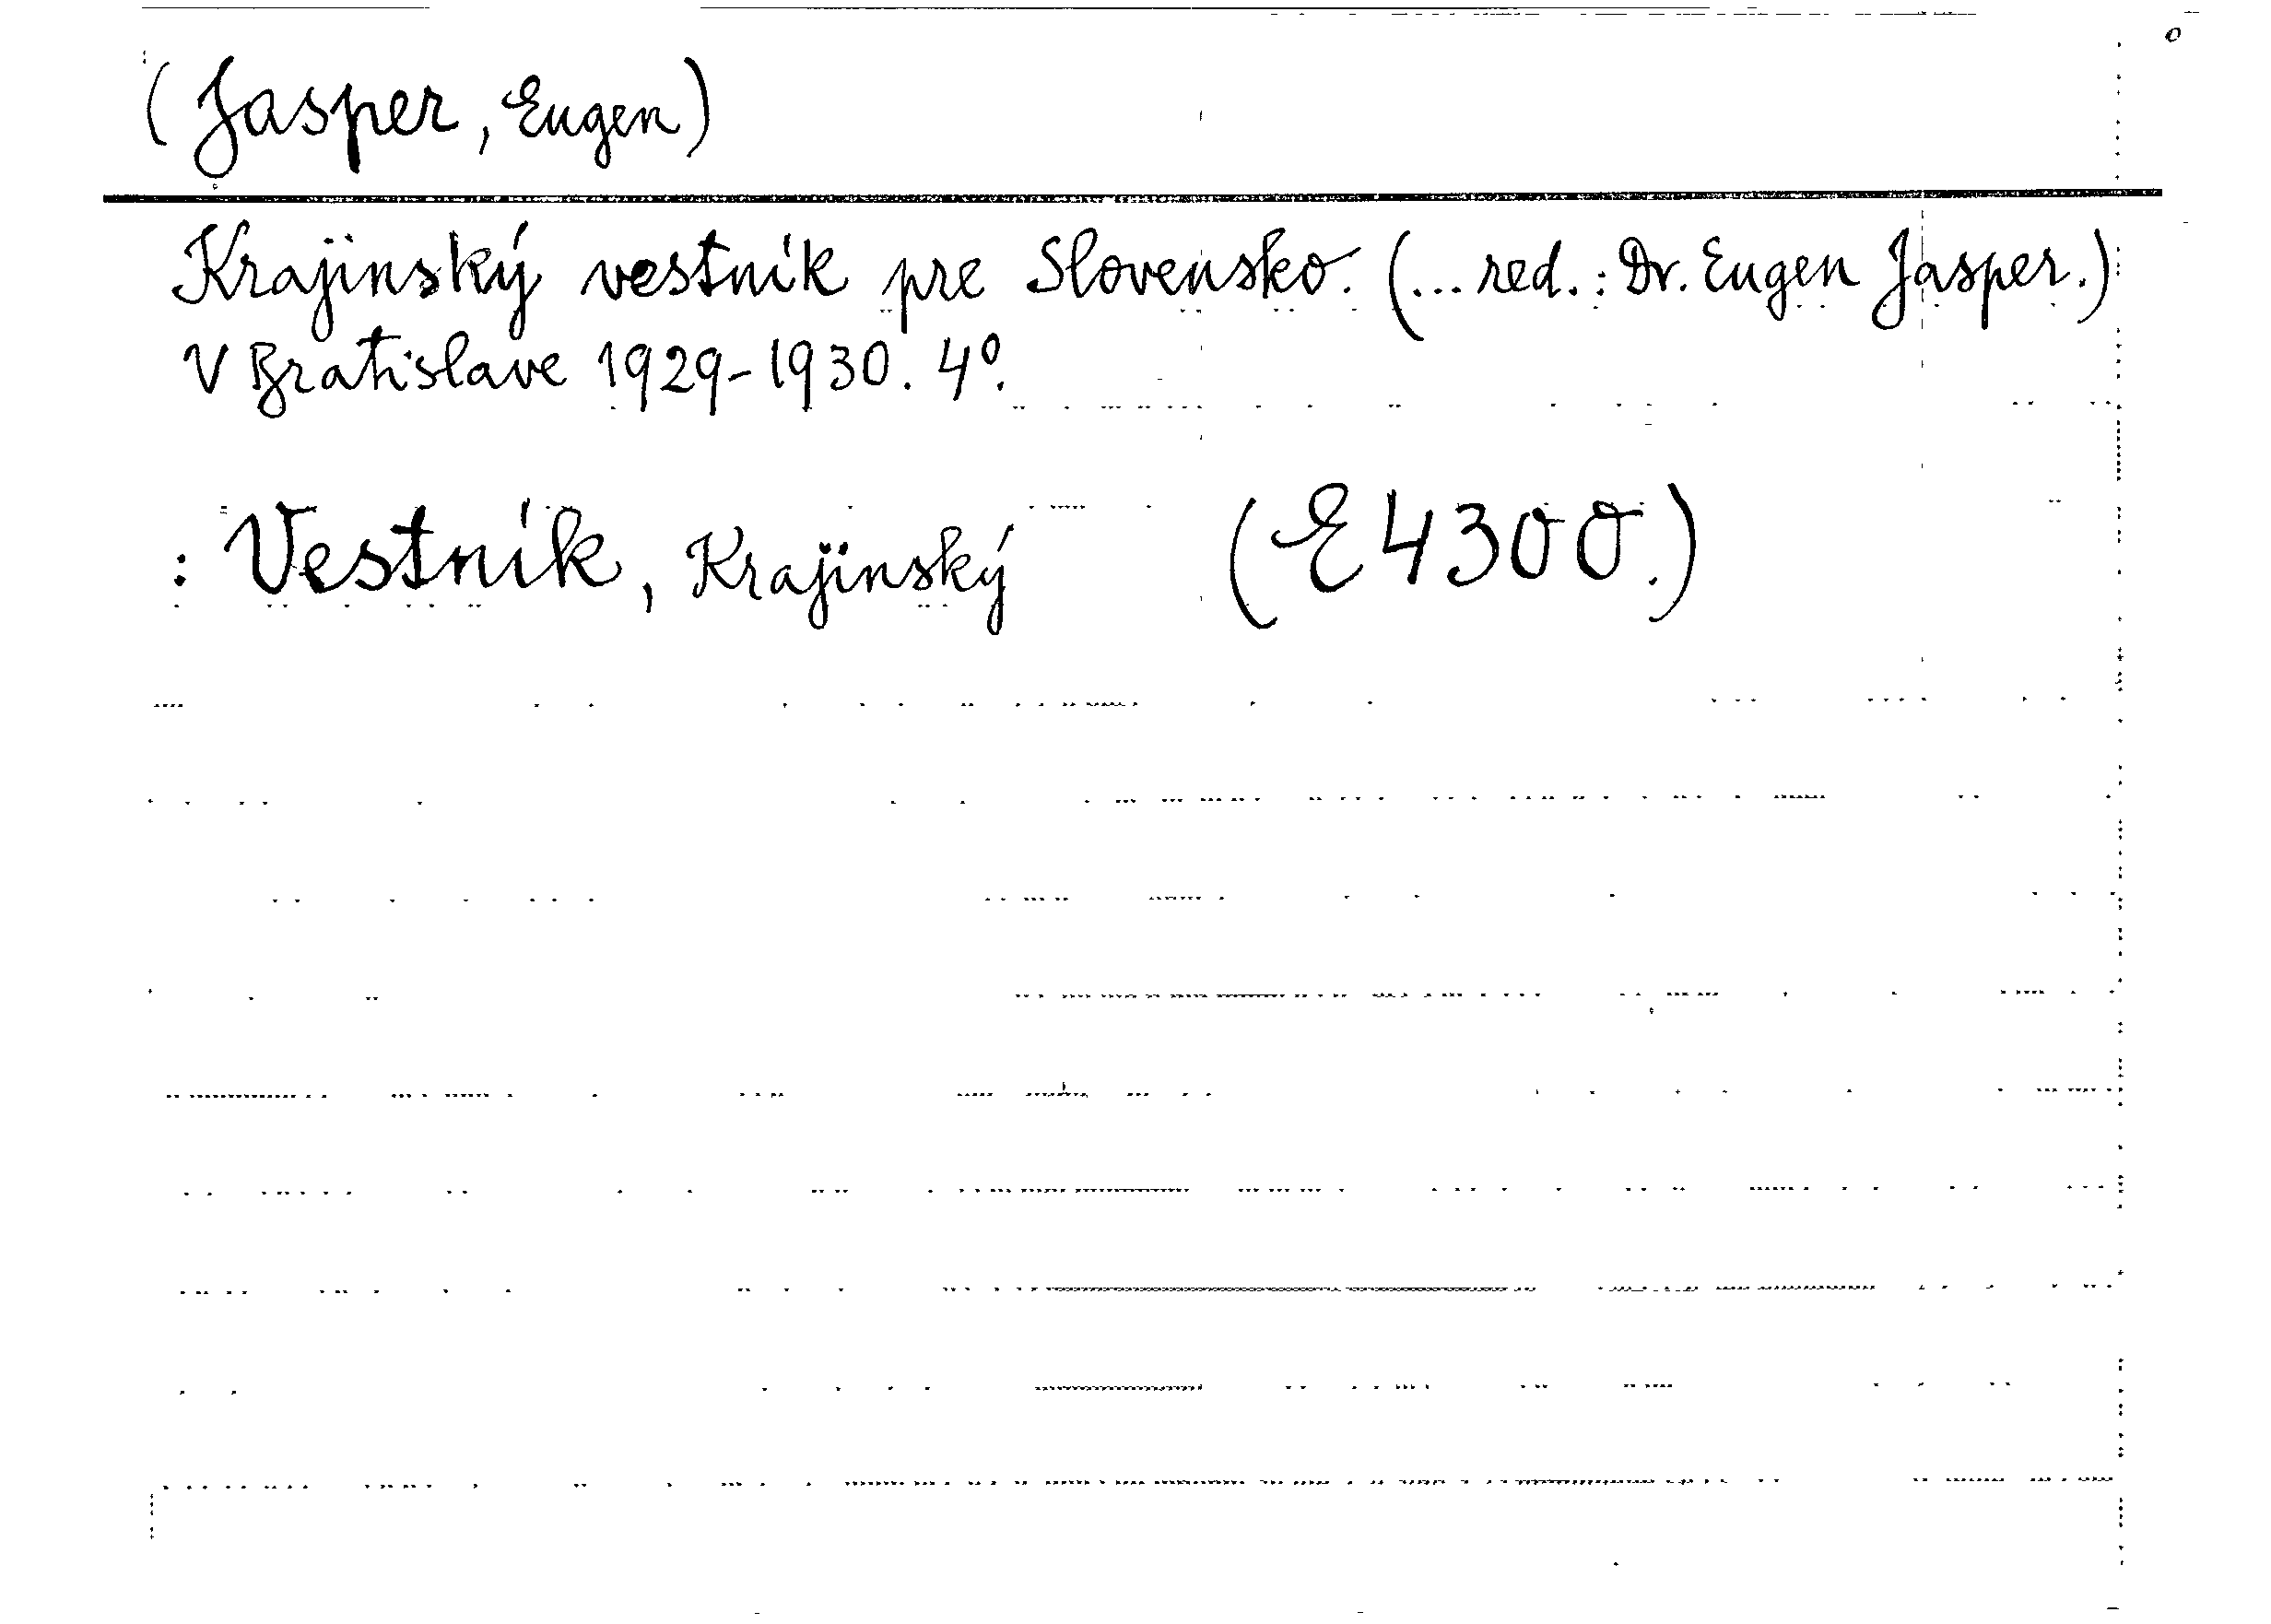 (Jasper, Eugen)
Krajinský vestník pre Slovensko. (... red.: Dr. Eugen Jasper.)
V Bratislave 1929-1930. 4º.
: Vestník, Krajinský (E 4300.)